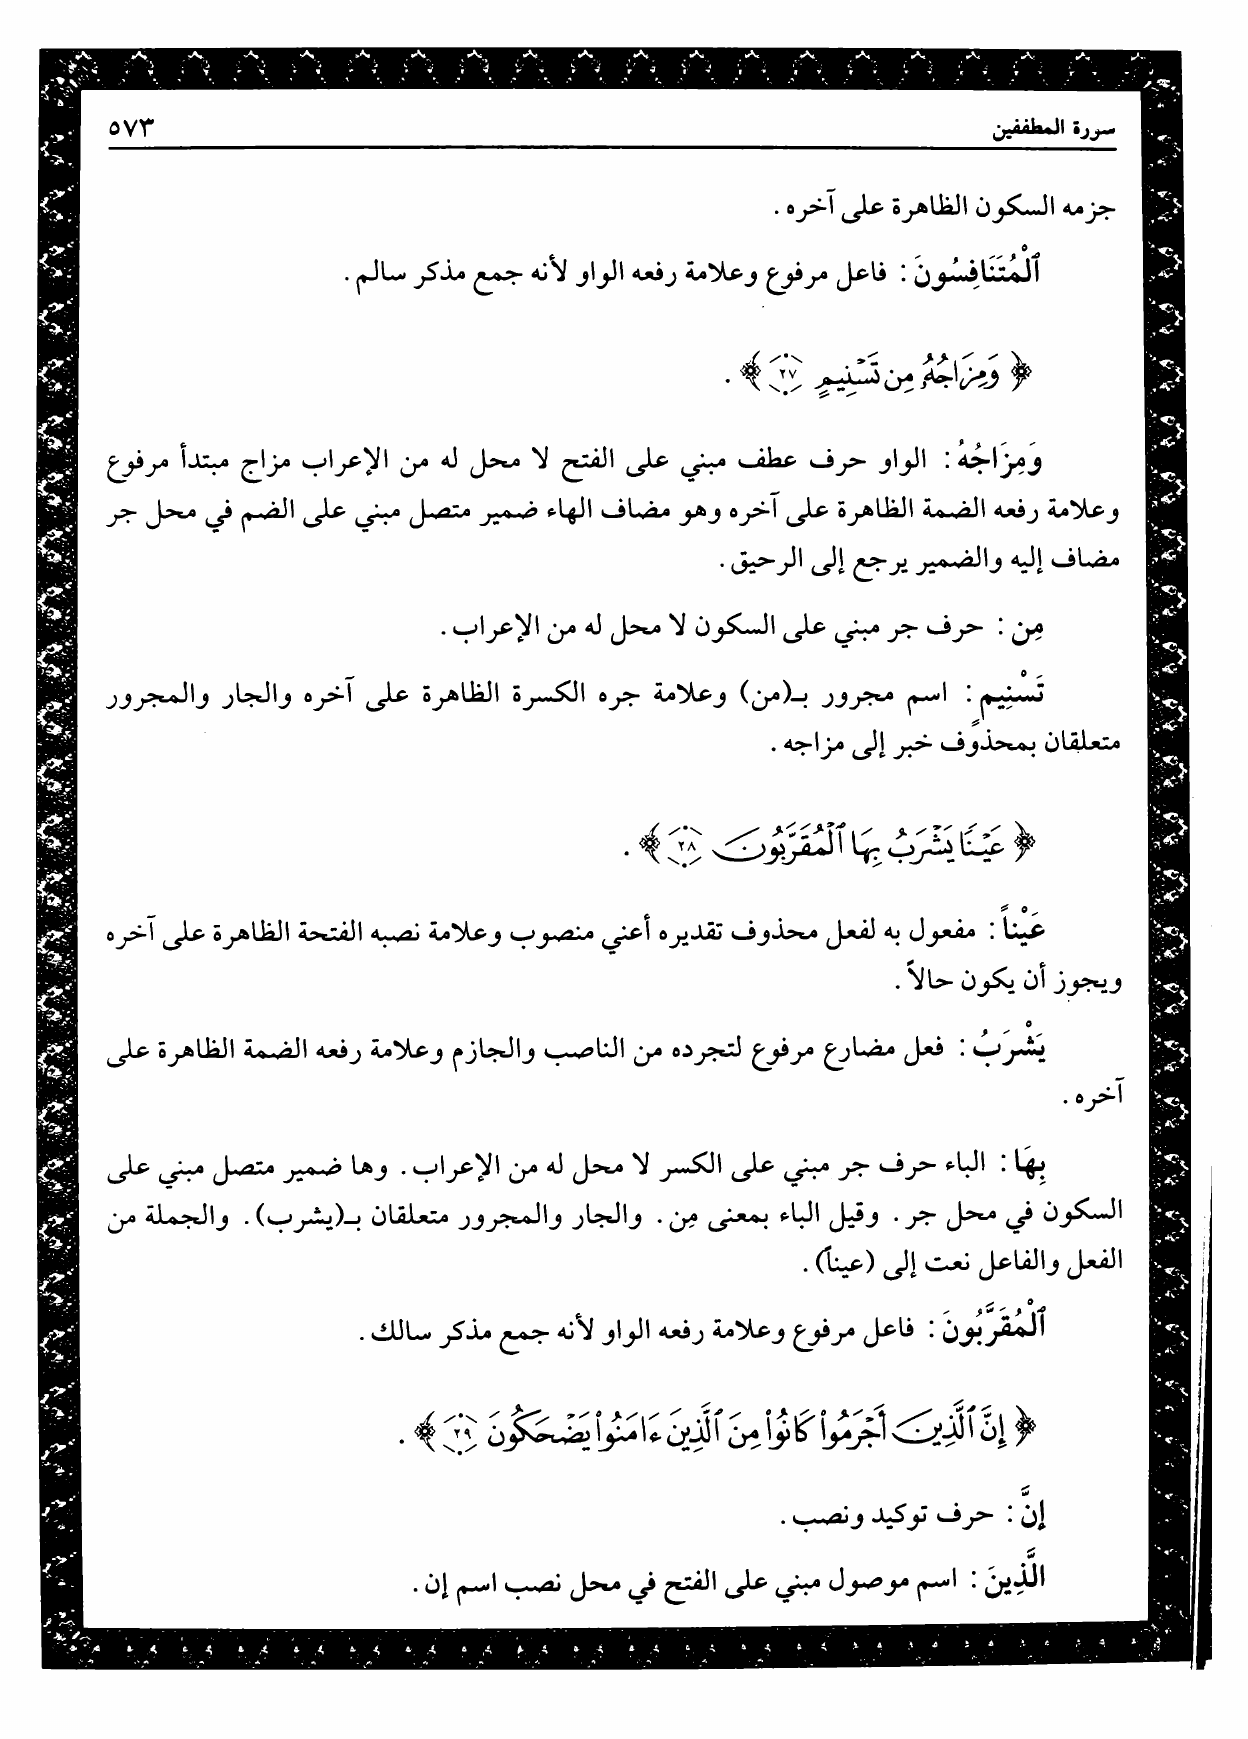 سورة المطففين ٥٧٣
جزمه السكون الظاهرة على آخره .
ٱلْمُتَنَافِسُونَ : فاعل مرفوع وعلامة رفعه الواو لأنه جمع مذكر سالم .
﴿ وَمِزَاجُهُۥ مِن تَسْنِيمٍ ٢٧ ﴾ .
وَمِزَاجُهُ : الواو حرف عطف مبني على الفتح لا محل له من الإعراب مزاج مبتدأ مرفوع
وعلامة رفعه الضمة الظاهرة على آخره وهو مضاف الهاء ضمير متصل مبني على الضم في محل جر
مضاف إليه والضمير يرجع إلى الرحيق .
مِن : حرف جر مبني على السكون لا محل له من الإعراب .
تَسْنِيمٍ : اسم مجرور بـ(من) وعلامة جره الكسرة الظاهرة على آخره والجار والمجرور
متعلقان بمحذوف خبر إلى مزاجه .
﴿ عَيْنًا يَشْرَبُ بِهَا ٱلْمُقَرَّبُونَ ٢٨ ﴾ .
عَيْناً : مفعول به لفعل محذوف تقديره أعني منصوب وعلامة نصبه الفتحة الظاهرة على آخره
ويجوز أن يكون حالاً .
يَشْرَبُ : فعل مضارع مرفوع لتجرده من الناصب والجازم وعلامة رفعه الضمة الظاهرة على
آخره .
بِهَا : الباء حرف جر مبني على الكسر لا محل له من الإعراب . وها ضمير متصل مبني على
السكون في محل جر . وقيل الباء بمعنى مِن . والجار والمجرور متعلقان بـ(يشرب) . والجملة من
الفعل والفاعل نعت إلى (عيناً) .
ٱلْمُقَرَّبُونَ : فاعل مرفوع وعلامة رفعه الواو لأنه جمع مذكر سالك .
﴿ إِنَّ ٱلَّذِينَ أَجْرَمُوا۟ كَانُوا۟ مِنَ ٱلَّذِينَ ءَامَنُوا۟ يَضْحَكُونَ ٢٩ ﴾ .
إنَّ : حرف توكيد ونصب .
الَّذِينَ : اسم موصول مبني على الفتح في محل نصب اسم إن .